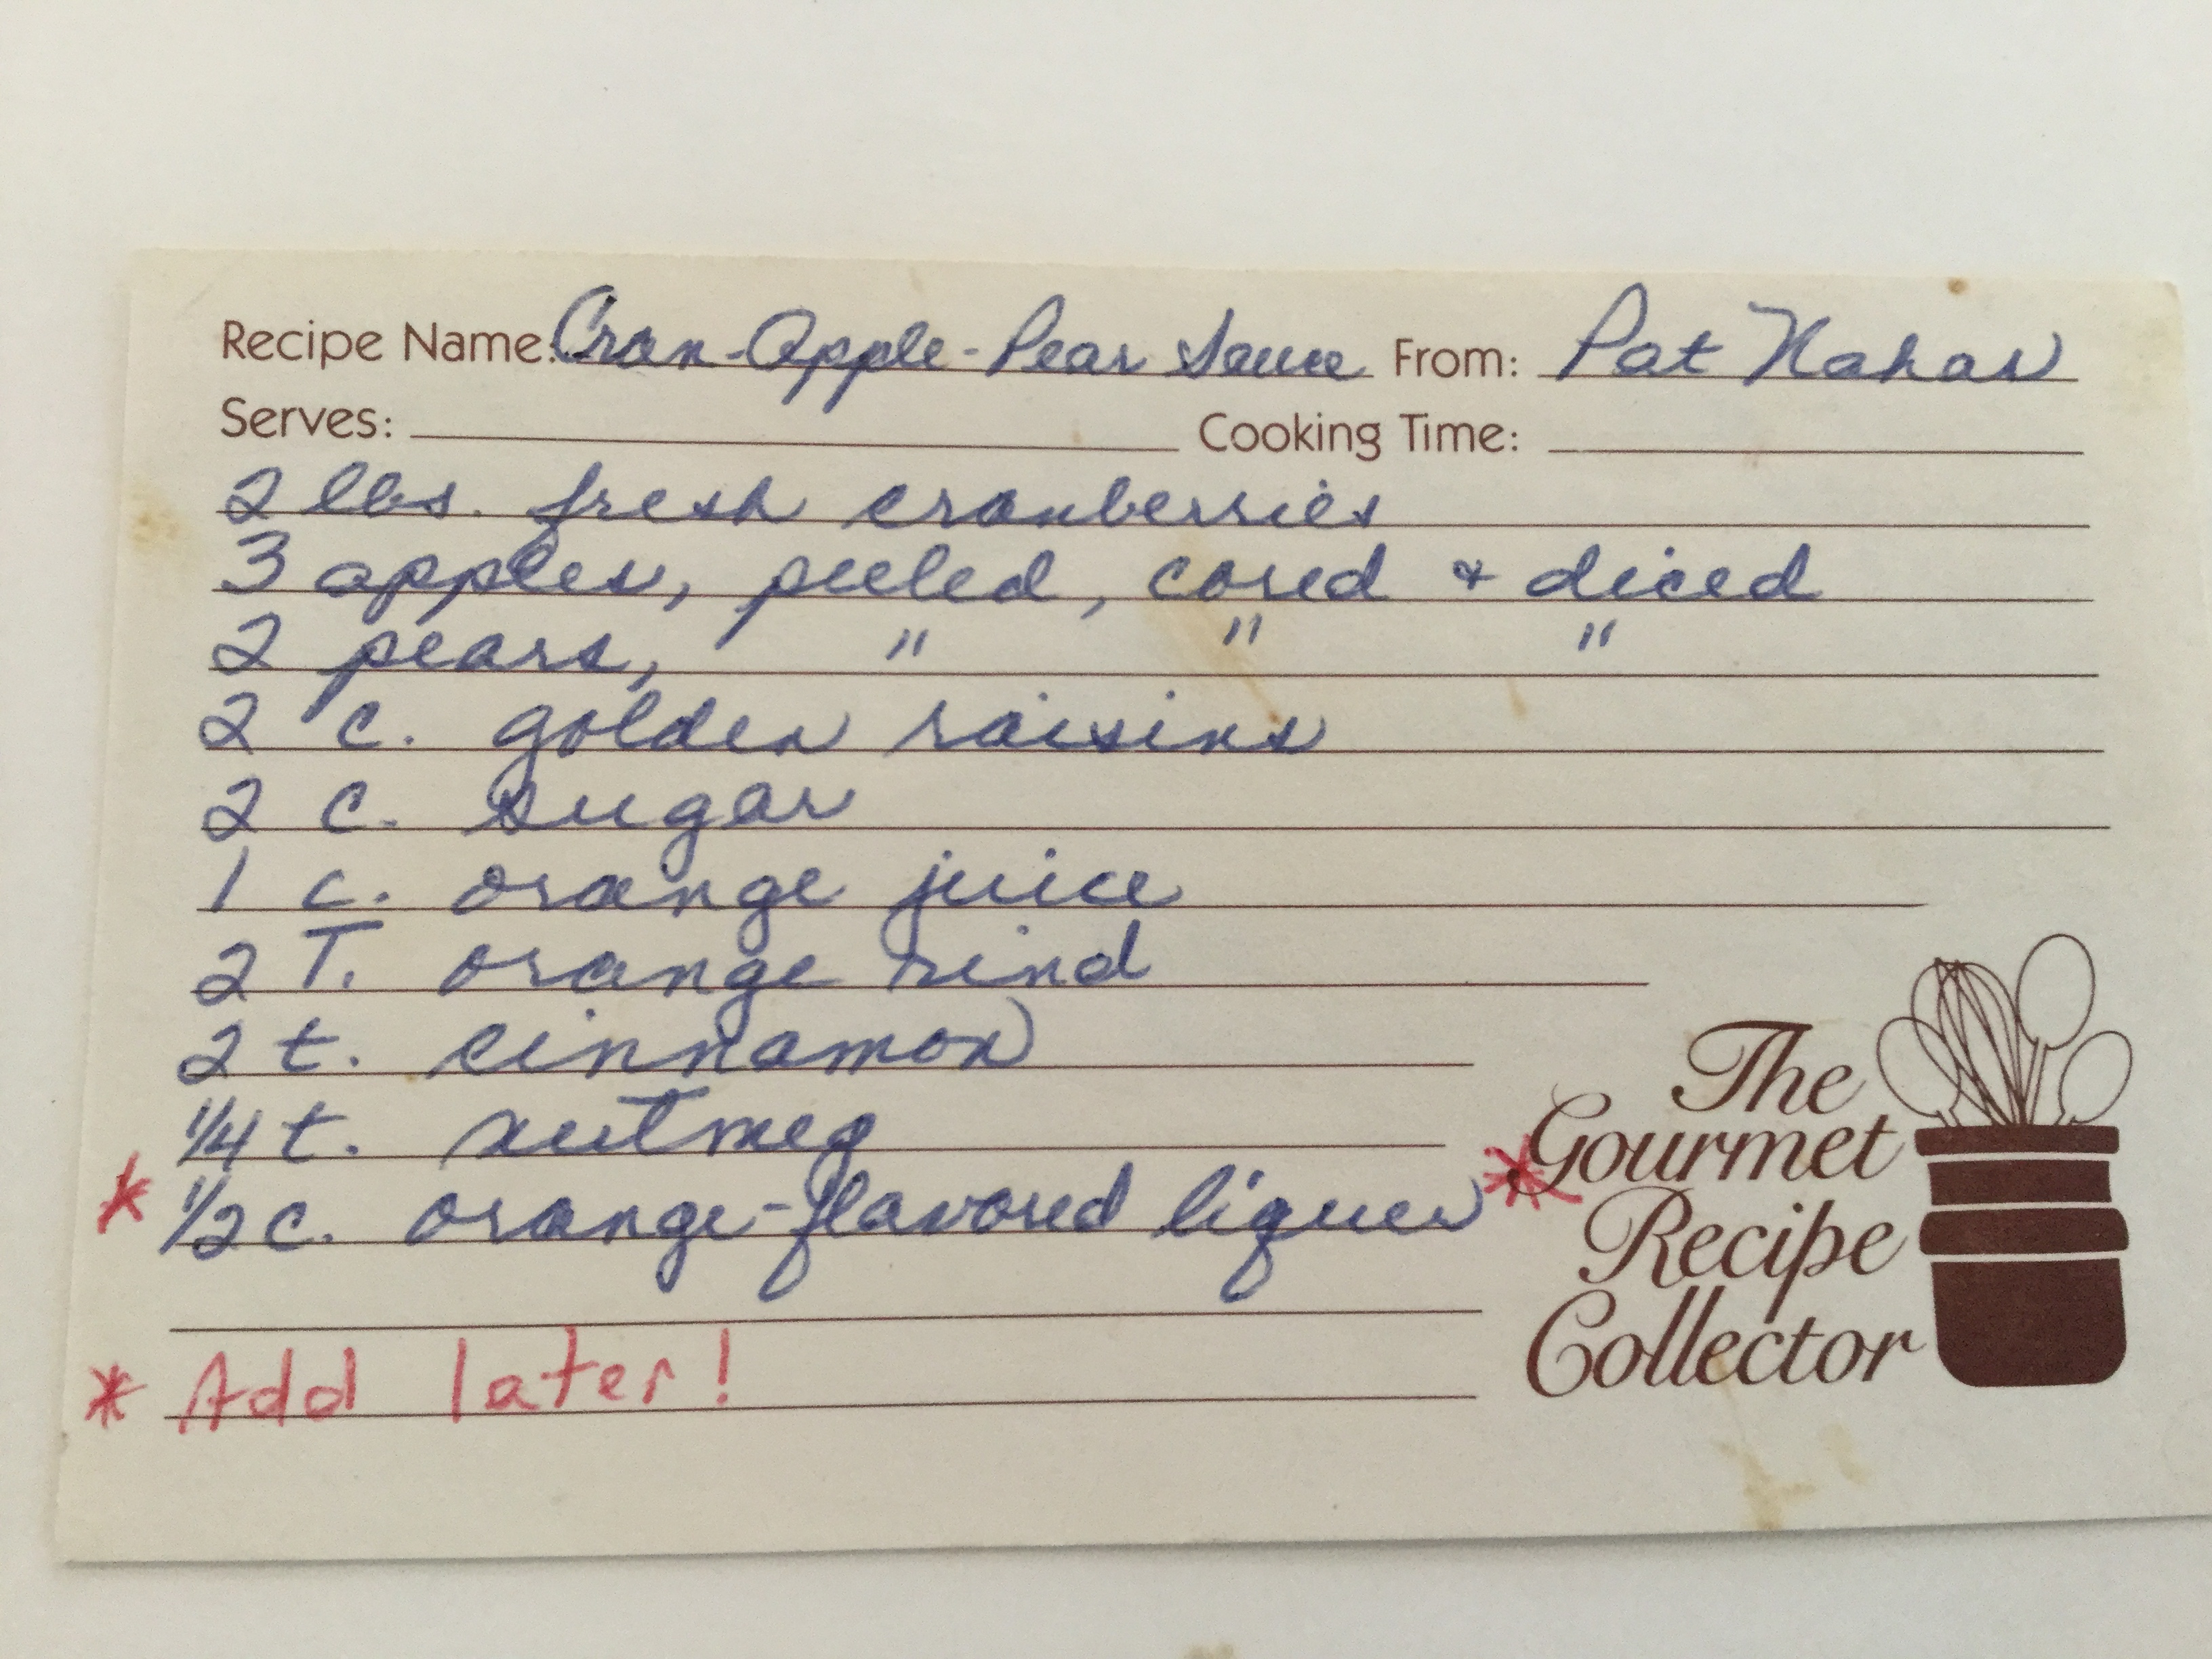 Recipe Name: Cran-Apple-Pear Sauce From: Pat Nahas
Serves: Cooking Time:
2 lbs. fresh cranberries
3 apples, peeled, cored & diced
2 pears, " " "
2 c. golden raisins
2 c. sugar
1 c. orange juice
2 T. orange rind
2 t. cinnamon
1/4 t. nutmeg
* 1/2 c. orange-flavored liquer *
* Add later!
The
Gourmet
Recipe
Collector